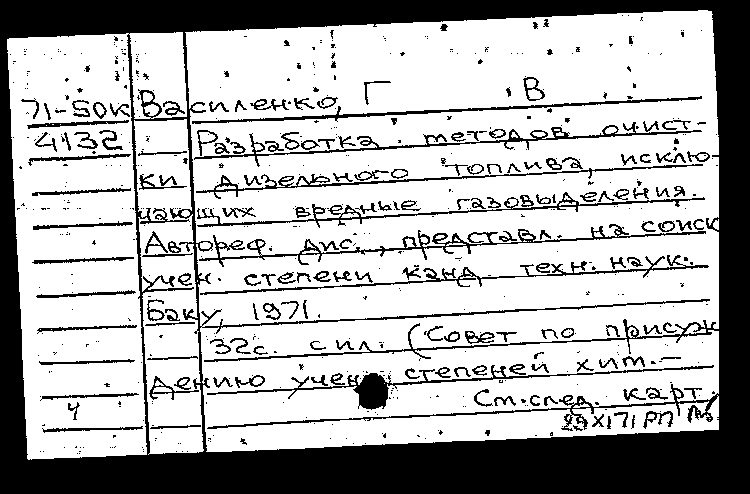 71-50к Василенко, Г В
4132 Разработка методов очист-
ки дизельного топлива, исклю-
чающих вредные газовыделения.
Автореф. дис., представл. на соиск
учен. степени канд техн. наук.
Баку, 1971.
32с. с ил. (Совет по присуж
дению учен степеней хим.-
Ч См.след. карт.
29 XI 71 РП